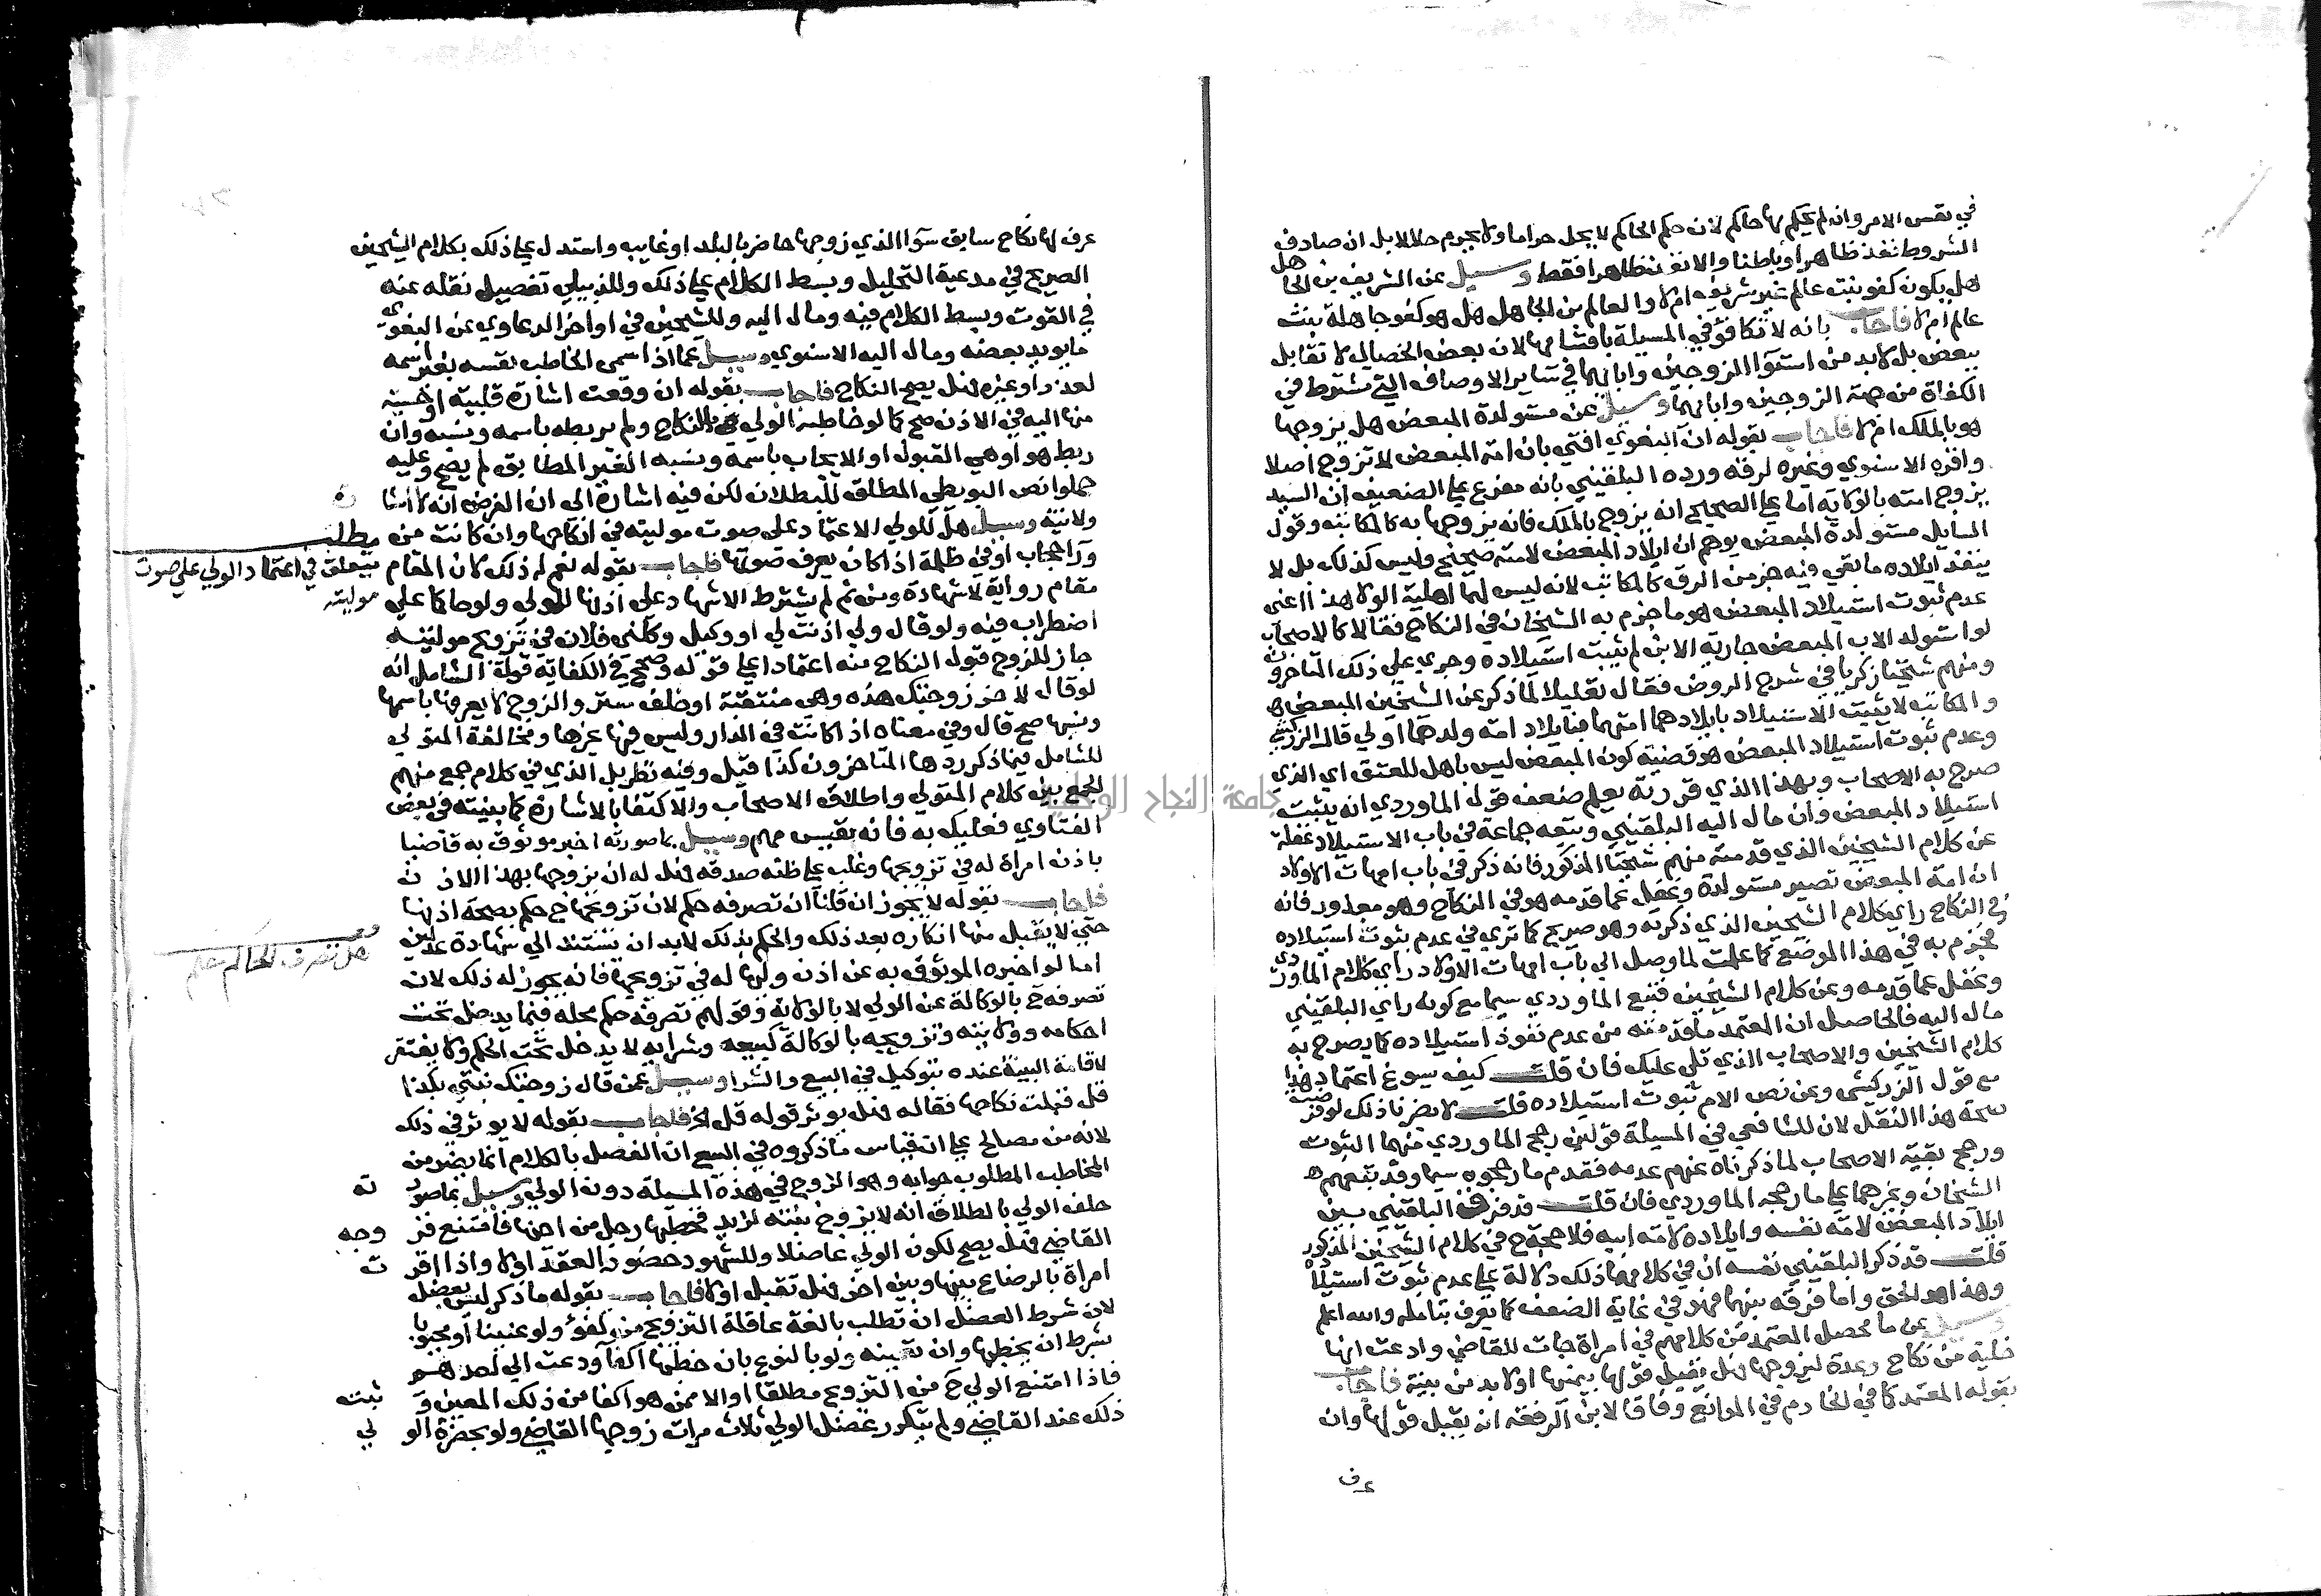 في نفس الامر وان لم يحكم بها حاكم لان حكم الحاكم لا يحل حراما ولا يحرم حلالا بل ان صادف
الشروط نفذ ظاهرا وباطنا والا نفذ ظاهرا فقط وسيل عن الشريف بن الجاهل
هل يكون كفو بنت عالم غير شريفه ام لا والعالم بن الجاهل هل هو كفو جاهلة بنت
عالم ام لا فاجاب بانه لا تكافؤ في المسيلة باقسامها لان بعض الخصال لا تقابل
ببعض بل لا بد من استوآ الزوجين وابايهما في ساير الاوصاف التي تشترط في
الكفاة من جهة الزوجين وابايهما وسيل عن مستولدة المبعض هل يزوجها
هو بالملك ام لا فاجاب بقوله ان البغوي افتي بان امة المبعض لا تزوج اصلا
واقره الاسنوي وغيره لرقه ورده البلقيني بانه مفرع على الضعيف ان السيد
يزوج امته بالولاية اما على الصحيح انه يزوج بالملك فانه يزوجها به كالمكاتبه وقول
السايل مستولدة المبعض يوهم ان ايلاد المبعض لامته صحيح وليس كذلك بل لا
ينفذ ايلاده ما بقي فيه جز من الرق كالمكاتب لانه ليس لهما اهلية الولا هذا اعني
عدم ثبوت استيلاد المبعض هو ما جزم به الشيخان في النكاح فقالا كالاصحاب
لو استولد الاب المبعض جارية الابن لم يثبت استيلاده وجري على ذلك المتاخرون
ومنهم شيخنا زكريا في شرح الروض فقال تعليلا لما ذكر عن الشيخين المبعض
والمكاتب لا يثبت الاستيلاد بايلادهما امتهما فبايلاد امة ولدهما اولي قال الزركشي
وعدم ثبوت استيلاد المبعض هو قضية كون المبعض ليس باهل للعتق اي الذي
صرح به الاصحاب وبهذا الذي قررته يعلم ضعف قول الماوردي انه يثبت
استيلاد المبعض وان مال اليه البلقيني وتبعه جماعة في باب الاستيلاد غفلة
عن كلام الشيخين الذي قدمته منهم شيخنا المذكور فانه ذكر في باب امهات الاولاد
ان امة المبعض تصير مستولدة وغفل عما قدمه هو في النكاح وهو معذور فانه
في النكاح راي كلام الشيخين الذي ذكرته وهو صريح كما تري في عدم ثبوت استيلاده
فجزم به في هذا الموضع كما علمت لما وصل الي باب امهات الاولاد راي كلام الماوردي
وغفل عما قدمه وعن كلام الشيخين فتبع الماوردي سيما مع كونه راي البلقيني
مال اليه فالحاصل ان المعتمد ما قدمته من عدم نفوذ استيلاده كما يصرح به
كلام الشيخين والاصحاب الذي تلي عليك فان قلت كيف سيوغ اعتماد هذا
مع قول الزركشي وعن نص الام ثبوت استيلاده قلت لا يضرنا ذلك لو فرضت
صحة هذا النقل لان للشافعي في المسيلة قولين رجح الماوردي منهما الثبوت
ورجح بقية الاصحاب لما ذكرناه عنهم عدمه فقدم ما رجحوه سيما وقد تبعهم
الشيخان وغيرهما على ما رجحه الماوردي فان قلت قد فرق البلقيني بين
ايلاد المبعض لامة نفسه وايلاده لامة ابيه فلا حجة ح في كلام الشيخين المذكور
قلت قد ذكر البلقيني نفسه ان في كلامهما ذلك دلالة على عدم ثبوت استيلاده
وهذا هو الحق واما فرقه بينهما فهو في غاية الضعف كما يعرف بتامله والله اعلم
وسيل عن ما تحصل المعتمد من كلامهم في امراة جات للقاضي وادعت انها
خلية من نكاح وعدة ليزوجها هل يقبل قولها بيمنها او لا بد من بينة فاجاب
بقوله المعتمد كما في الخادم في الموانع وفاقا لابن الرفعه انه يقبل قولها وان
عرف
عرف لها نكاح سابق سوآ الذي زوجها حاضر بالبلد او غايبه واستدل على ذلك بكلام الشيخين
الصريح في مدعية التحليل وبسط الكلام على ذلك وللذبيلي تفصيل نقله عنه
في القوت وبسط الكلام فيه ومال اليه وللشيخين في اواخر الدعاوي عن البغوي
ما يويد بعضه ومال اليه الاسنوي وسيل عما اذا سمى الخاطب نفسه بغير اسمه
لعذر او غيره هل يصح النكاح فاجاب بقوله ان وقعت اشارة قلبية او حسية
منها اليه في الاذن صح كما لو خاطبه الولي بالنكاح ولم يربطه باسمه ونسبه وان
ربط هو او هي القبول او الايجاب باسمه ونسبه الغير المطابق لم يصح وعليه
حملوا نص البويطي المطلق للبطلان لكن فيه اشارة الى ان الفرض انه لا اشارة
ولا نية وسيل هل للولي الاعتماد على صوت موليته في انكاحها وان كانت من
ورآ حجاب او في ظلمة اذا كان يعرف صوتها فاجاب بقوله نعم له ذلك لان المقام
مقام رواية لا شهادة ومن ثم لم يشترط الاشهاد على اذنها للولي ولو حاكما على
اضطراب فيه ولو قال ولي اذنت لي او وكيل وكلني فلان في تزويج موليته
جاز للزوج قبول النكاح منه اعتمادا على قوله وصحح في الكفاية قول الشامل انه
لو قال لاخر زوجتك هذه وهي منتقبة او خلف ستر والزوج لا يعرفها باسمها
ونسبها صح قال وفي معناه اذا كانت في الدار وليس فيها غيرها ومخالفة المتولي
للشامل فيما ذكر ردها المتاخرون كذا قيل وفيه نظر بل الذي في كلام جمع منهم
الجمع بين كلام المتولي واطلاق الاصحاب والاكتفا بالاشارة كما بينته في بعض
الفتاوي فعليك به فانه نفيس مهم وسيل بما صورته اخبر موثوق به قاضيا
باذن امراة له في تزويجها وغلب على ظنه صدقه فهل له ان يزوجها بهذا الاذن
فاجاب بقوله لا يجوز ان قلنا ان تصرفه حكم لان تزويجها ح حكم بصحة اذنها
حتي لا يقبل منها انكاره بعد ذلك والحكم بذلك لا بد ان يستند الي شهادة عدلين
اما لو اخبره الموثوق به عن اذن وليها له في تزويجها فانه يجوز له ذلك لان
تصرفه ح بالوكالة عن الولي لا بالولاية وقولهم تصرفه حكم محله فيما يدخل تحت
احكامه وولايته وتزويجه بالوكالة كبيعه وشرايه لا يدخل تحت الحكم ولا يفتقر
لاقامة البينة عنده بتوكيل في البيع والشرا وسيل عمن قال زوجتك بنتي بكذا
قل قبلت نكاحها فقاله فهل يوثر قوله قل الخ فاجاب بقوله لا يوثر في ذلك
لانه من مصالح على ان قياس ما ذكروه في البيع ان الفصل بالكلام انما يضر من
المخاطب المطلوب جوابه وهو الزوج في هذه المسيلة دون الولي وسيل بما صورته
حلف الولي بالطلاق انه لا يزوج بنته لزيد فخطبها رجل من اهلها فامتنع فزوجه
القاضي فهل يصح لكون الولي عاضلا وللشهود حضور العقد اولا واذا اقرت
امراة بالرضاع بينها وبين اخر فهل تقبل او لا فاجاب بقوله ما ذكر ليس بعضل
لان شرط العضل ان تطلب بالغة عاقلة التزويج من كفؤ ولو عنينا او مجبوبا
بشرط ان يخطبها وان تعينه ولو بالنوع بان خطبها اكفآ ودعت الي احدهم
فاذا امتنع الولي ح من التزويج مطلقا او الا ممن هو اكفا من ذلك المعين وثبت
ذلك عند القاضي ولم يتكرر عضل الولي ثلاث مرات زوجها القاضي ولو بحضرة الولي
مطلب
يتعلق في اعتماد الولي على صوت
موليته
هل تصرف الحاكم حكم
جامعة النجاح الوطنية